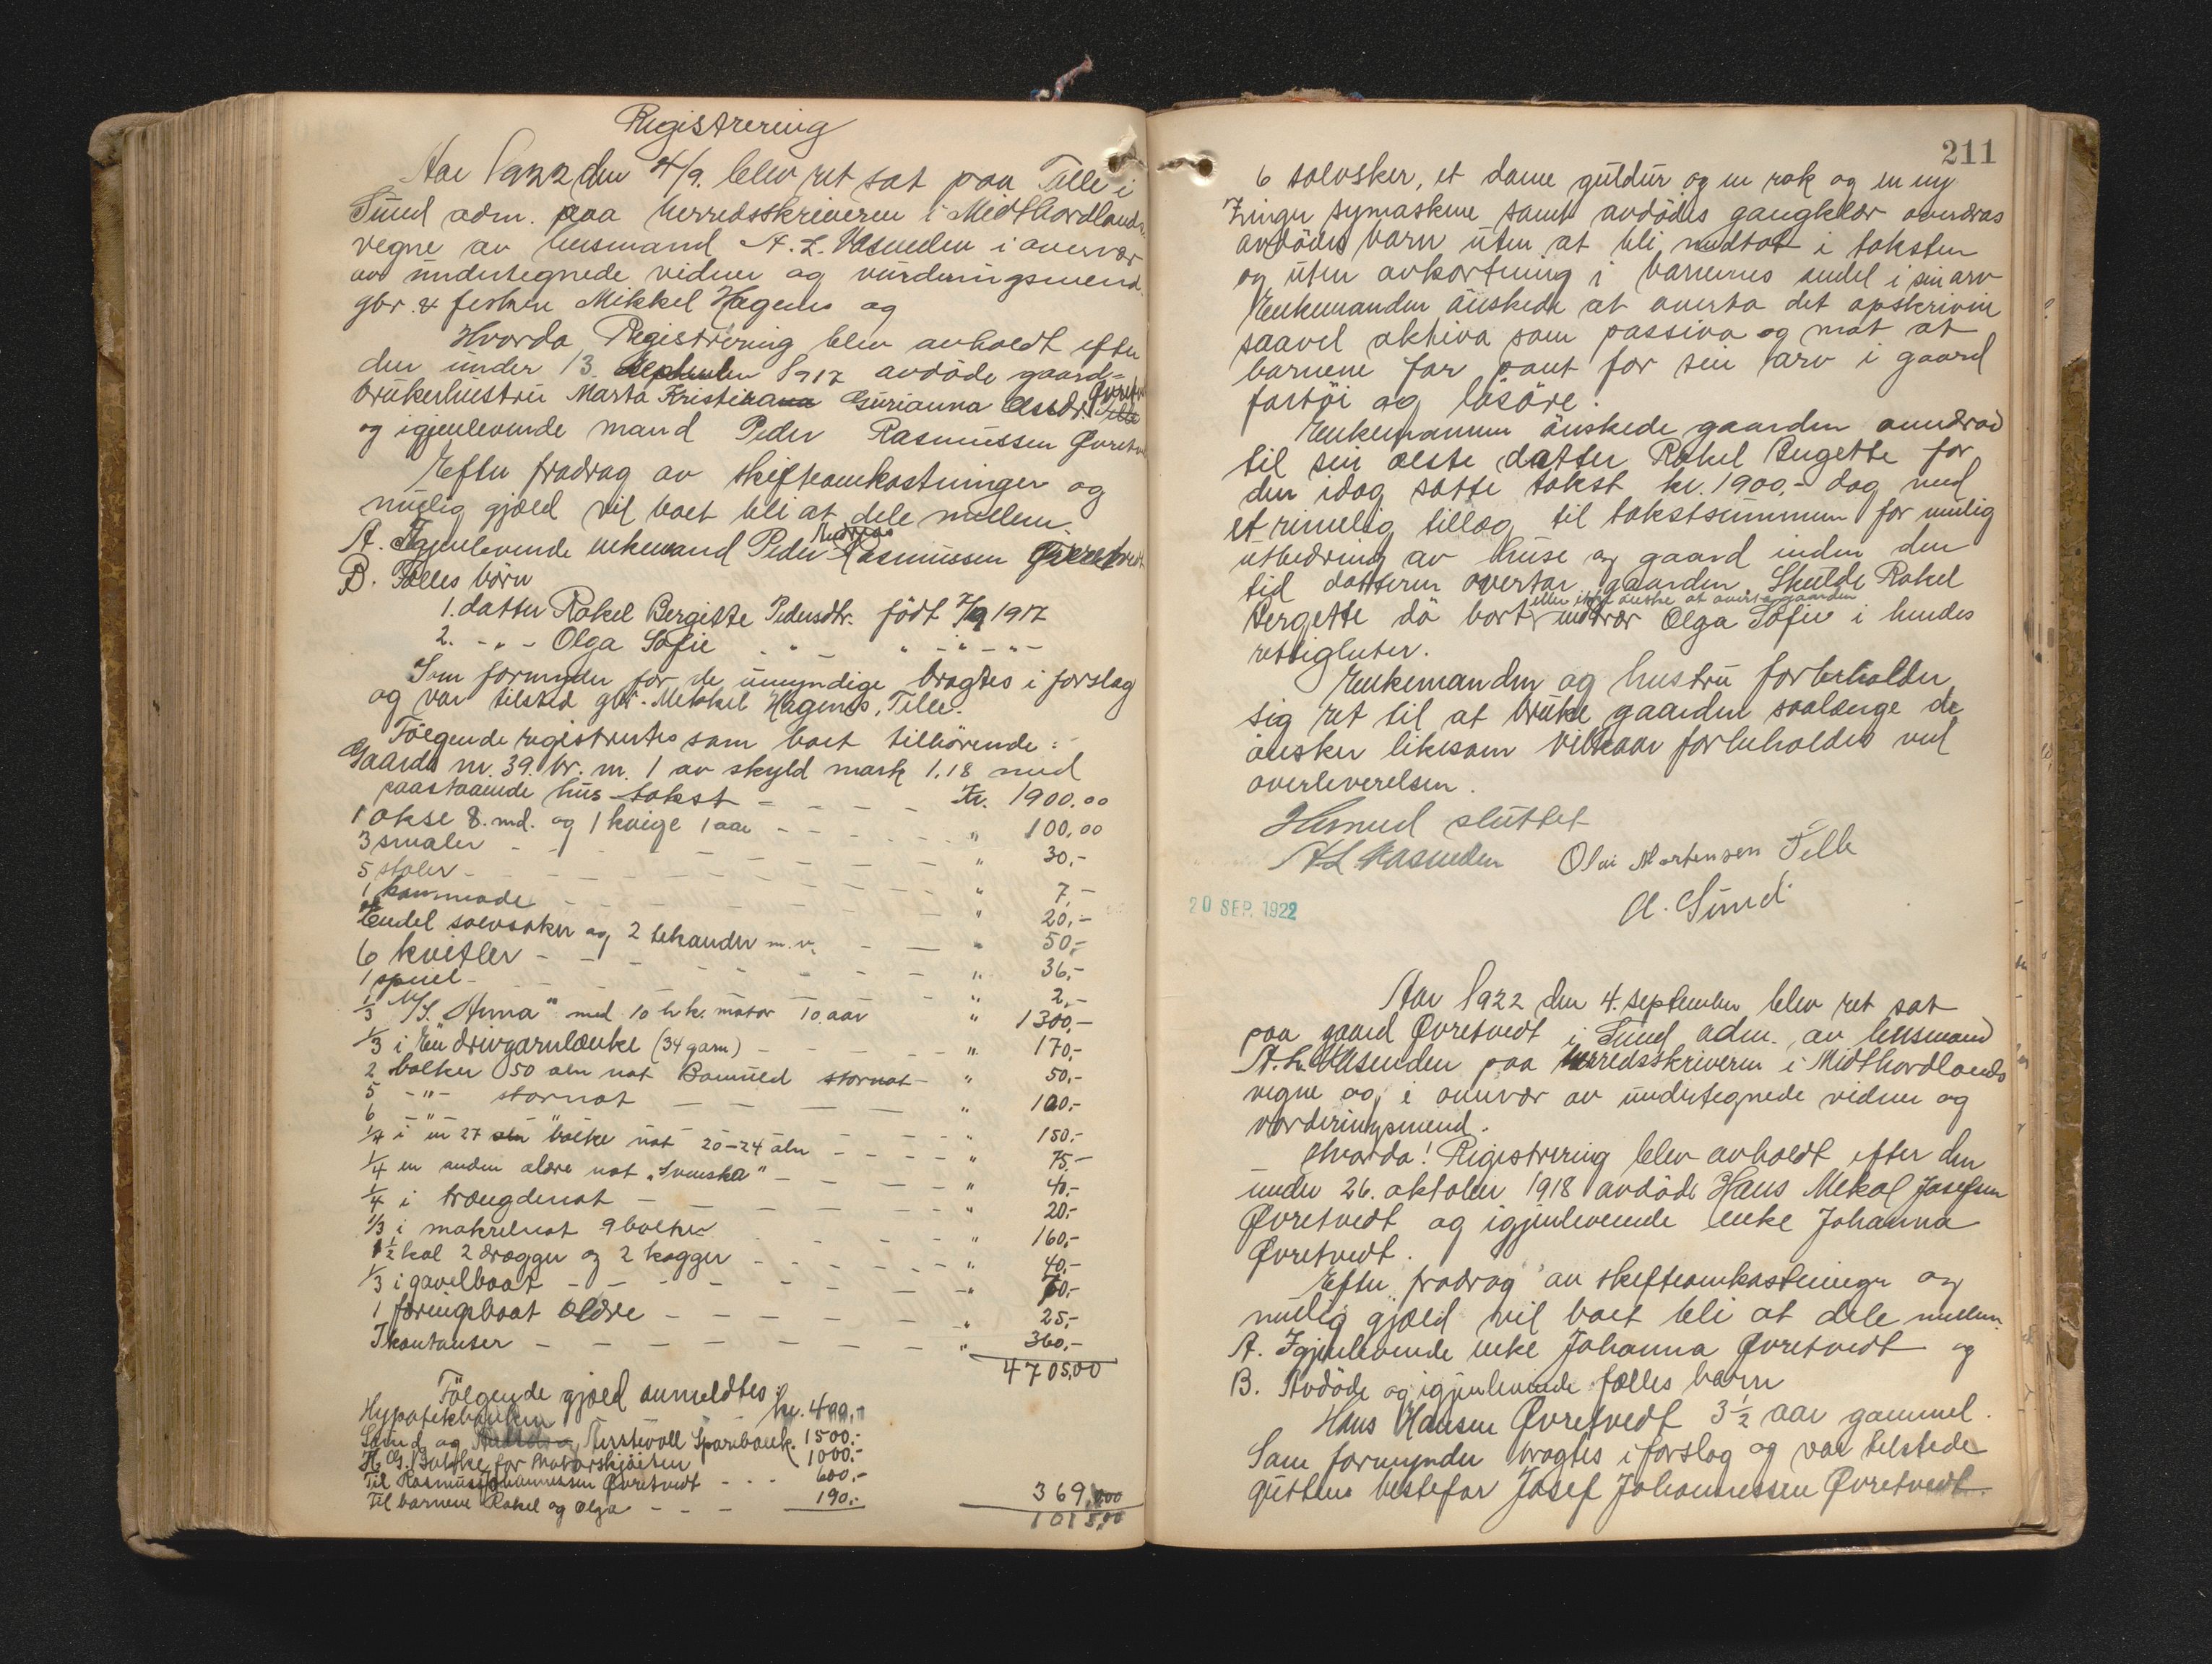 Registrering
Aar 1922 den 4/9. blev ret sat paa Telle i
Sund adm. paa herredsskriveren i Midthordlands
vegne av lensmand A. L. Vasenden i overvær
av undertegnede vidner og vurderingsmend.
gbr. & Mikkel Hagenes og
Hvorda Registrering blev avholdt efter
den under 13 September 1917 avdöde gaard-
brukerhustru Marta Kristiana Gurianna Olsdr. Øvretv
og igjenlevende mand Peder Rasmussen Øvretv
Efter fradrag av skifteomkostninger og
mulig gjæld vil boet bli at dele mellem
A. Igjenlevende enkemand Peder Andreas Rasmussen Øvretvedt
B. Fælles börn
1. datter Rakel Bergitte Pedersdtr. född 7/9 1917
2. -"- Olga Sofie " - " - " - " -
Som formynder for de umyndige bragtes i forslag
og var tilsted gbr. Mikkel Hagenes, Telle.
Fölgende registrertes som boet tilhörende:
Gaards nr. 39. br. nr. 1 av skyld mark 1.18 med
paastaaende hus takst - - - - Kr. 1900.00
1 okse 8. md. og 1 kvige 1 aar - - - - " 100,00
3 smaler - - - - " 30,-
5 stoler - - - - " 7,-
1 kommode - - - - " 20,-
Endel sølvsaker og 2 tekander m. v. - - " 50,-
6 kvitler - - - - " 36,-
1 speil - - - - " 2,-
1/3 M/S. "Anna" med 10 h.k. motor 10 aar " 1300,-
1/3 i En drivgarnlænke (34 garn) - - - " 170,-
2 bolker 50 aln not Bomuld stornot - " 50,-
5 -"- stornot - - - - " 100,-
6 -"- - - - - " 150,-
1/4 i en 27 aln bolke not 20-24 aln - - - " 75,-
1/4 en anden ældre not "Svenska" - - - " 40,-
1/4 i trængdenot - - - - " 20,-
1/3 i makrelnot 9 bolker - - - " 160,-
1 1/2 kal 2 drægger og 2 kagger - - - " 40,-
1/3 i gavelbaat - - - - " 70,-
1 föringsbaat ældre - - - - " 25,-
I kontanter - - - - " 360,-
4705,00
Fölgende gjæld anmeldtes:
Hypotekbanken kr. 400,-
Sund og Austevoll Sparebank. 1500,-
H. G. for Motorskjöiten 1000,-
Til Rasmus Johannessen Øvretvedt - - - 600,-
Til barnene Rakel og Olga - - - 190,-
369,000
1015,00
211
6 sølvsker, et dame guldur og en rok og en ny
Zinger symaskine samt avdödes gangklær overdras
avdödes barn uten at bli medtat i taksten
og uten avkortning i barnenes andel i sin arv
Enkemanden önskede at overta det opskrivne
saavel aktiva som passiva og mot at
barnene far pant for sin arv i gaard
fartöi og lösöre.
Enkemannen önskede gaarden overdrad
til sin ælste datter Rakel Bergette for
den idag satte takst kr. 1900,- dog med
et rimelig tillæg til takstsummen for mulig
utbedring av huse og gaard inden den
tid datteren overtar gaarden. Skulde Rakel
eller ikke önske at overta gaarden
Bergette dö bort indtrær Olga Sofie i hendes
rettigheter.
Enkemanden og hustru forbeholder
sig ret til at bruke gaarden saalænge de
önsker likesom vilkaar forbeholdes ved
overleverelsen.
Hermed sluttet
A L Vasenden Olai Mortensen Telle
A. Sund
20 SEP. 1922
Aar 1922 den 4. september blev ret sat
paa gaard Øvretvedt i Sund adm. av lensmand
A. L. Vasenden paa herredsskriveren i Midthordlands
vegne og i overvær av undertegnede vidner og
vorderingsmend.
Hvorda! Registrering blev avholdt efter den
under 26. oktober 1918 avdöde Hans Mekal Josefsen
Øvretvedt og igjenlevende enke Johanna
Øvretvedt.
Efter fradrag av skifteomkostninger og
mulig gjæld vil boet bli at dele mellem
A. Igjenlevende enke Johanna Øvretvedt og
B. Avdöde og igjenlevende fælles barn
Hans Hansen Øvretvedt 3 1/2 aar gammel.
Som formynder bragtes i forslag og var tilstede
guttens bestefar Josef Johannessen Øvretvedt.